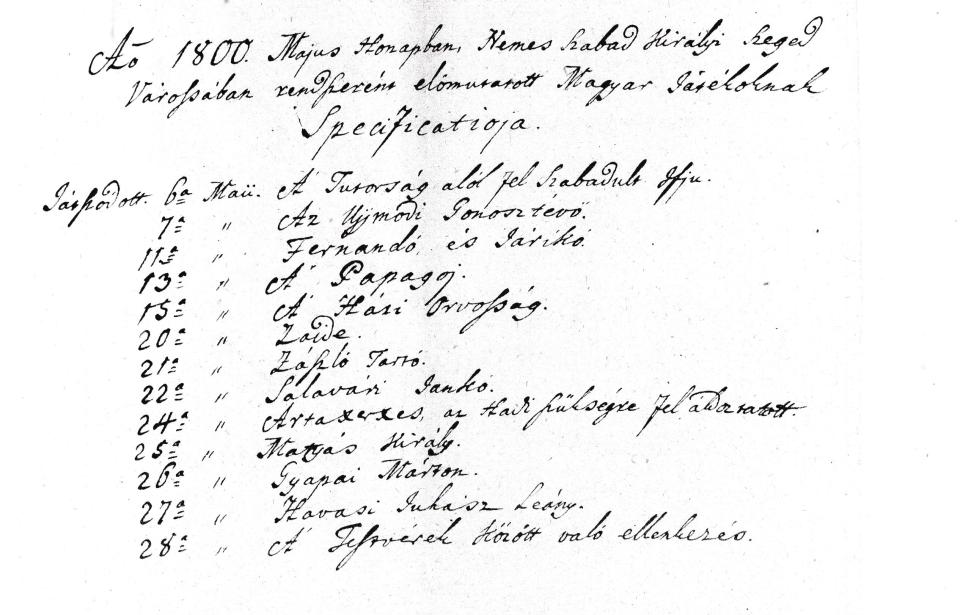 Aō 1800. Majus Honapban, Nemes Szabad Királyi Szeged
Várossában rendszerént elömutatott Magyar Játékoknak
Specificatioja.
Játszódott. 6a Maii. A' Tutorság alól fel szabadult Ifju.
7a " Az Ujmódi Gonosztévö.
11a " Fernandó és Járikó.
13a " A' Papagoj.
15a " A' Házi Orvosság.
20a " Zaide.
21a " Zászló Tartó.
22a " Salavári Jankó.
24a " Artaxerxes, az Hadi szükségre fel áldoztatott.
25a " Matyás Király.
26a " Gyapai Márton.
27a " Havasi Juhász Leány.
28a " A' Testvérek Között való ellenkezés.